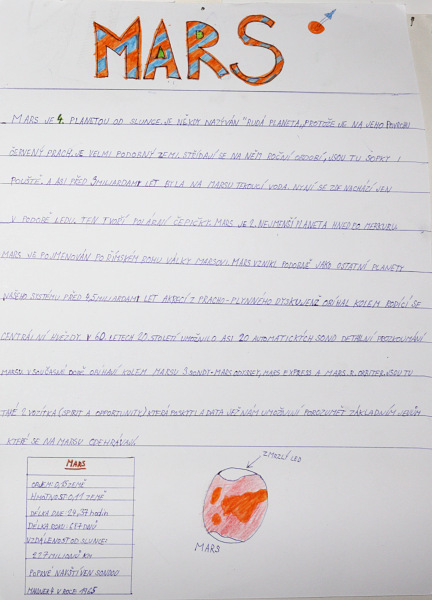 MARS
MARS JE 4. PLANETOU OD SLUNCE. JE NĚKDY NAZÝVÁN "RUDÁ PLANETA, PROTOŽE JE NA JEHO POVRCHU
ČERVENÝ PRACH. JE VELMI PODOBNÝ ZEMI. STŘÍDAJÍ SE NA NĚM ROČNÍ OBDOBÍ, JSOU TU SOPKY I
POUŠTĚ. A ASI PŘED 3 MILIARDAMI LET BYLA NA MARSU TEKOUCÍ VODA. NYNÍ SE ZDE NACHÁZÍ JEN
V PODOBĚ LEDU. TEN TVOŘÍ POLÁRNÍ ČEPIČKY. MARS JE 2. NEJMENŠÍ PLANETA HNED PO MERKURU.
MARS JE POJMENOVÁN PO ŘÍMSKÉM BOHU VÁLKY MARSOVI. MARS VZNIKL PODOBNĚ JAKO OSTATNÍ PLANETY
NAŠEHO SYSTÉMU PŘED 4,5 MILIARDAMI LET AKRECÍ Z PRACHO-PLYNNÉHO DYSKU, JENŽ OBÍHAL KOLEM RODÍCÍ SE
CENTRÁLNÍ HVĚZDY. V 60. LETECH 20. STOLETÍ UMOŽNILO ASI 20 AUTOMATICKÝCH SOND DETAILNÍ PROZKOUMÁNÍ
MARSU. V SOUČASNÉ DOBĚ OBÍHAJÍ KOLEM MARSU 3 SONDY-MARS ODYSSEY, MARS EXPRESS A MARS. R. ORBITER. JSOU TU
TAKÉ 2 VOZÍTKA (SPIRIT A OPPORTUNITY) KTERÁ POSKYTLI A DATA JEŽ NÁM UMOŽŇUJÍ POROZUMĚT ZÁKLADNÍM JEVŮM
KTERÉ SE NA MARSU ODEHRÁVAJÍ.
ZMRZLÝ LED
MARS
OBJEM: 0,15 ZEMĚ
HMOTNOST 0,11 ZEMĚ
DÉLKA DNE 24,37 hodin
DÉLKA ROKU: 687 DNŮ
VZDÁLENOST OD SLUNCE:
227 MILIONŮ KM
POPRVÉ NAVŠTÍVEN SONDOU
MARINER 4 V ROCE 1965
MARS